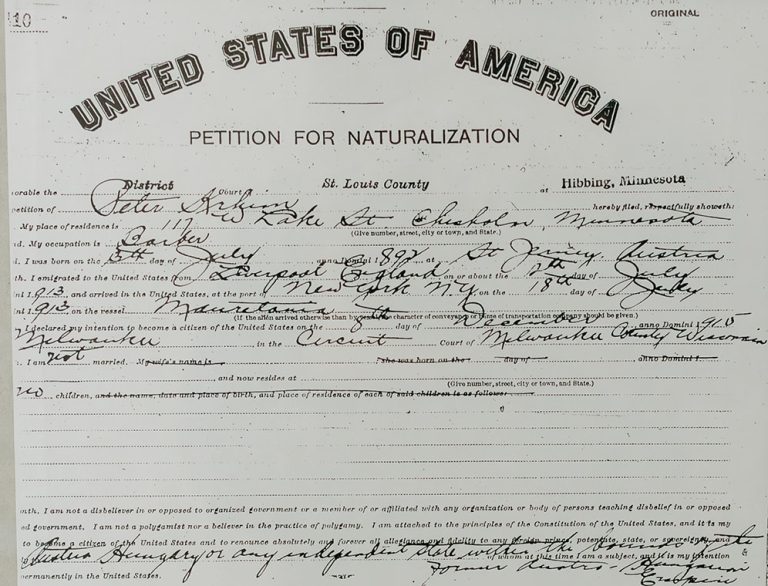 110 ORIGINAL
UNITED STATES OF AMERICA
PETITION FOR NATURALIZATION
orable the District Court St. Louis County at Hibbing, Minnesota
petition of Peter hereby filed, respectfully showeth:
My place of residence is 111 W Lake St. Chisholm, Minnesota
(Give number, street, city or town, and State.)
d. My occupation is Barber
d. I was born on the 5th day of July anno Domini 1892 at St Austria
th. I emigrated to the United States from Liverpool England on or about the 12th day of July
ni 1913 and arrived in the United States, at the port of New York N.Y. on the 18th day of July
ni 1913 on the vessel Mauretania
(If the alien arrived otherwise than by vessel, the character of conveyance or name of transportation company should be given.)
I declared my intention to become a citizen of the United States on the 8th day of December anno Domini 1915
Milwaukee in the Circuit Court of Milwaukee County Wisconsin
. I am not married. My wife's name is she was born on the day of anno Domini 1
and now resides at
(Give number, street, city or town, and State.)
no children, and the name, date and place of birth, and place of residence of each of said children is as follows:
nth. I am not a disbeliever in or opposed to organized government or a member of or affiliated with any organization or body of persons teaching disbelief in or opposed
ed government. I am not a polygamist nor a believer in the practice of polygamy. I am attached to the principles of the Constitution of the United States, and it is my
to become a citizen of the United States and to renounce absolutely and forever all allegiance and fidelity to any foreign prince, potentate, state, or sovereignty, and
Austria Hungary or any independent State within the bounds of the
of whom at this time I am a subject, and it is my intention
former Austro-Hungarian
permanently in the United States. Empire